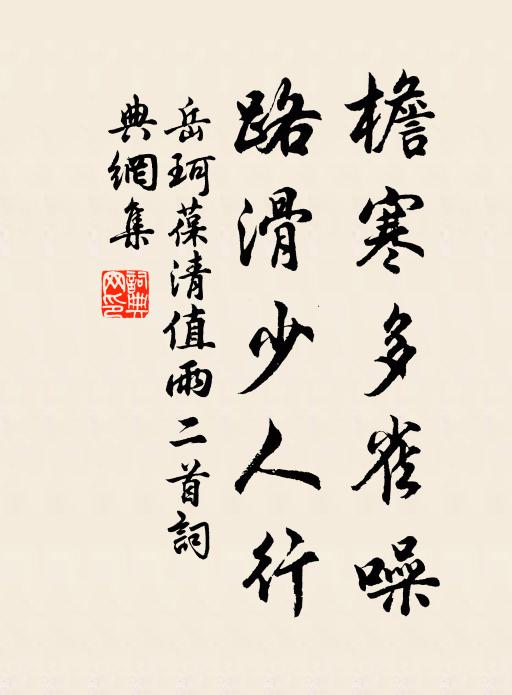 檐寒多雀噪
路滑少人行
岳珂葆清值雨二首詞
典網集
詞典
网印